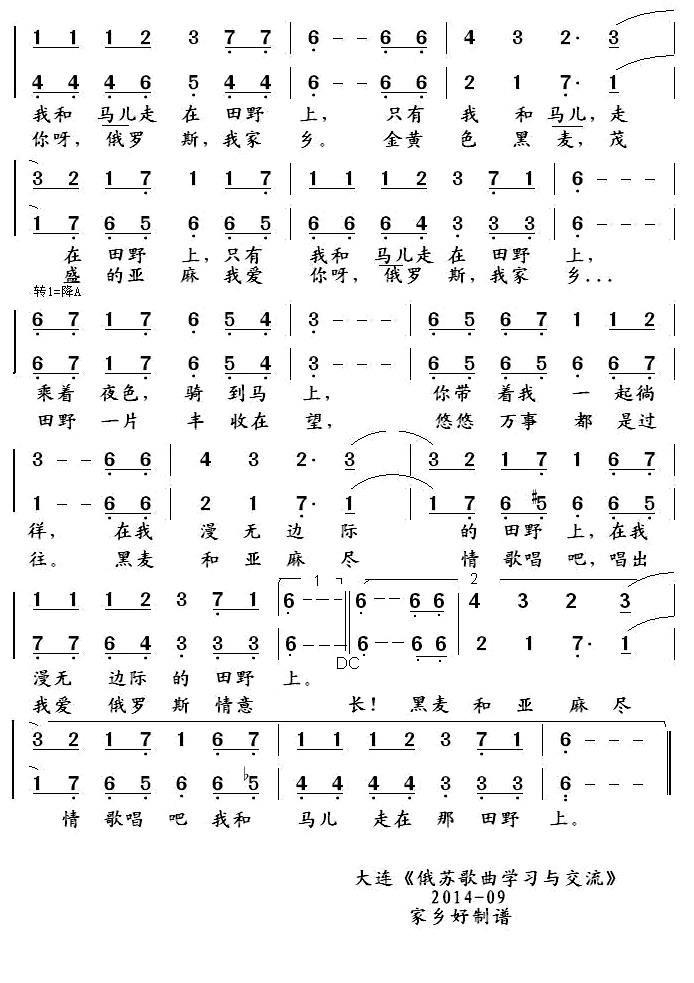 1 1 1 2 3 7 7 6 - - 6 6 4 3 2· 3
4 4 4 6 5 4 4 6 - - 6 6 2 1 7· 1
我和 马儿走 在 田野 上, 只有 我 和 马儿, 走
你呀, 俄罗 斯, 我家 乡。 金黄 色 黑 麦, 茂
3 2 1 7 1 7 1 1 1 2 3 7 1 6 - - -
1 7 6 5 6 6 5 6 6 6 4 3 3 3 6 - - -
在 田野 上, 只有 我和 马儿走 在 田野 上,
盛 的亚 麻 我爱 你呀, 俄罗 斯, 我家 乡...
转1=降A
6 7 1 7 6 5 4 3 - - - 6 5 6 7 1 1 2
6 7 1 7 6 5 4 3 - - - 6 5 6 5 6 6 7
乘着 夜色, 骑 到马 上, 你带 着我 一 起徜
田野 一片 丰 收在 望, 悠悠 万事 都 是过
3 - - 6 6 4 3 2· 3 3 2 1 7 1 6 7
1 - - 6 6 2 1 7· 1 1 7 6 #5 6 6 5
徉, 在我 漫 无 边 际 的 田野 上, 在我
往。 黑麦 和 亚 麻 尽 情 歌唱 吧, 唱出
1 2
1 1 1 2 3 7 1 6 - - - 6 - - 6 6 4 3 2 3
7 7 6 4 3 3 3 6 - - - 6 - - 6 6 2 1 7· 1
DC
漫无 边际 的 田野 上。
我爱 俄罗 斯 情意 长! 黑麦 和 亚 麻 尽
3 2 1 7 1 6 7 1 1 1 2 3 7 1 6 - - -
1 7 6 5 6 6 ♭5 4 4 4 4 3 3 3 6 - - -
情 歌唱 吧 我和 马儿 走在 那 田野 上。
大连《俄苏歌曲学习与交流》
2014-09
家乡好制谱